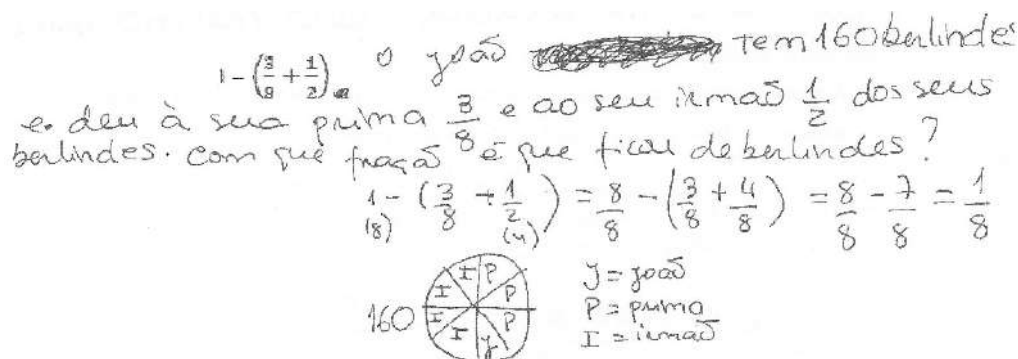 1 - (3/8 + 1/2) O João tem 160 berlindes
e deu à sua prima 3/8 e ao seu irmaõ 1/2 dos seus
berlindes. com que fraçaõ é que ficou de berlindes?
1 - (3/8 + 1/2) = 8/8 - (3/8 + 4/8) = 8/8 - 7/8 = 1/8
(8) (4)
160 I P I P I P I J
J = joaõ
P = prima
I = irmaõ